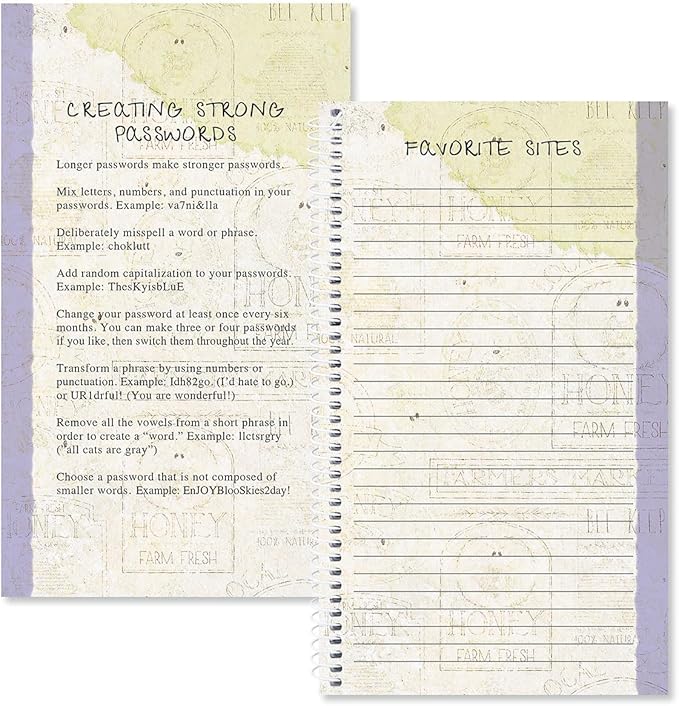 BEE KEEP
CREATING STRONG
PASSWORDS
100% NATURAL
FARM FRESH
Longer passwords make stronger passwords.
Mix letters, numbers, and punctuation in your
passwords. Example: va7ni&lla
Deliberately misspell a word or phrase.
Example: choklutt
Add random capitalization to your passwords.
Example: ThesKyisbLuE
HONEY
Change your password at least once every six
months. You can make three or four passwords
if you like, then switch them throughout the year.
Transform a phrase by using numbers or
punctuation. Example: Idh82go. (I'd hate to go.)
or UR1drful! (You are wonderful!)
Remove all the vowels from a short phrase in
order to create a “word.” Example: llctsrgry
(“all cats are gray”)
Choose a password that is not composed of
smaller words. Example: EnJOYBlooSkies2day!
HONEY
HONEY
FARM FRESH
100% NATURAL
BEE KEEP
FAVORITE SITES
HONEY
FARM FRESH
100% NATURAL
HONEY
FARM FRESH
FARMERS MARKET
BEE KEEP
HONEY
HONEY
100% NATURAL
FARM FRESH